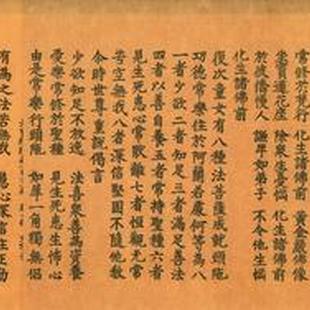 常修於梵行 化生諸佛前 黃金嚴佛像
坐寶蓮花座 除衆生憂惱 化生諸佛前
於彼憍慢人 謙卑如弟子 不令他生惱
化生諸佛前
復次童女有八種法菩薩成就頭陀
功德常樂住於阿蘭若處何等為八
一者少欲二者知足三者滿足善法
四者以善自養五者常持聖種六者
見生死患心常厭離七者恒觀無常
苦空無我八者深信堅固不隨他教
尒時世尊重說偈言
少欲知足不放逸 法喜樂善為資養
愛樂常修於聖種 見生死患生怖心
由是常樂行頭陀 如犀一角獨無侶
有為之法苦無我 慧心深信住正勤